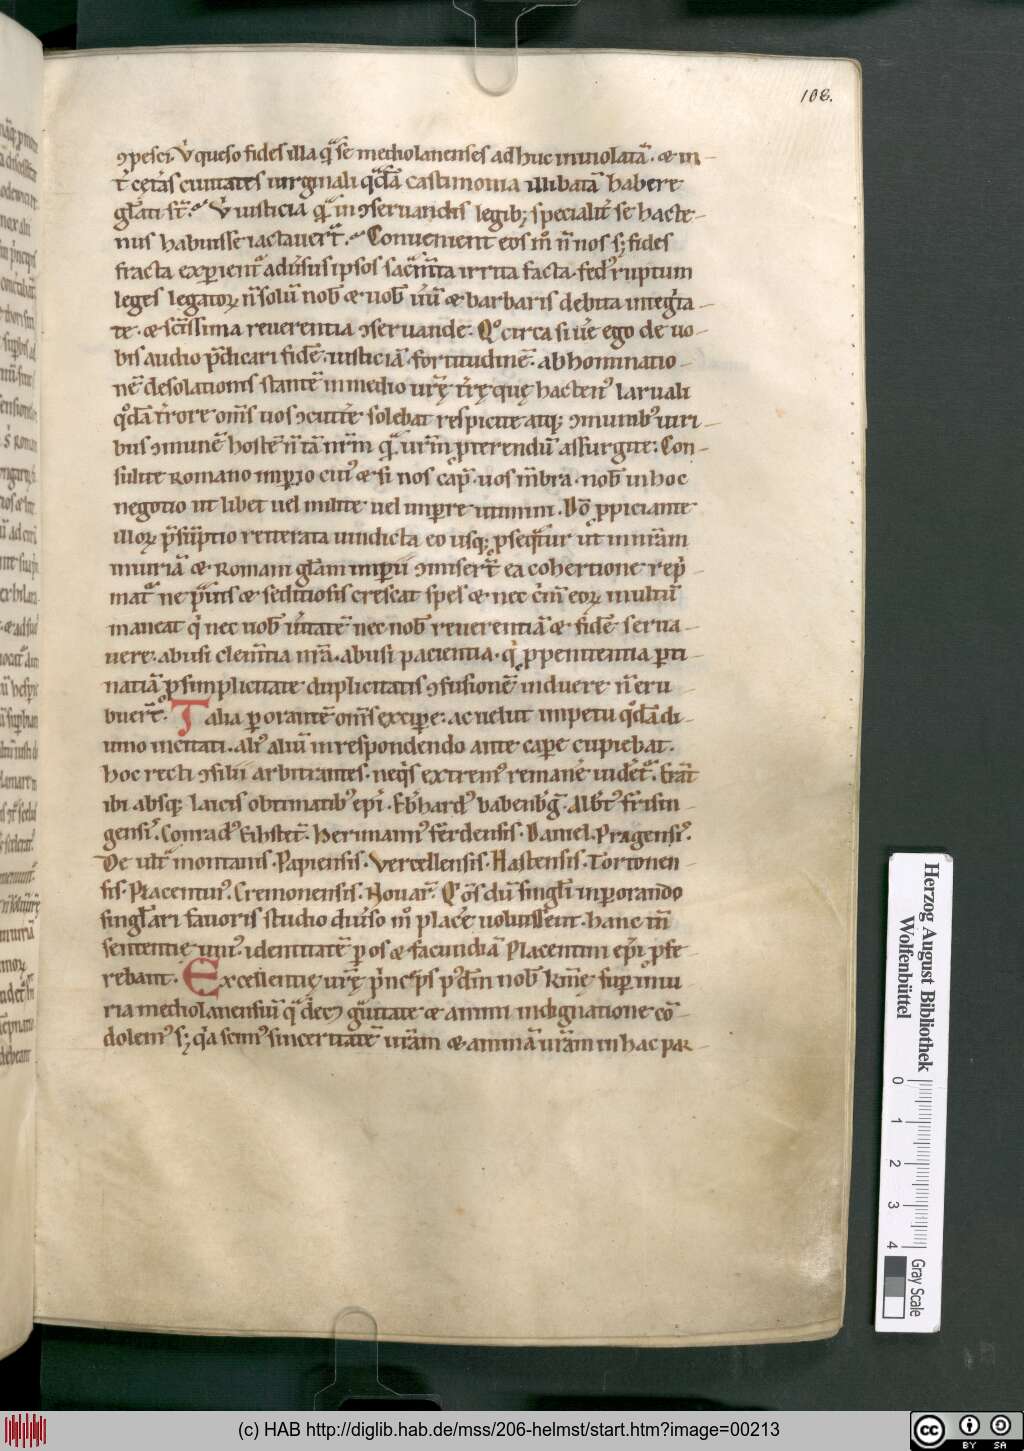 106.
ꝯpesci. Vͥ queso fides illa qͣ̄ se mediolanenses ad huc inuiolatā. & in-
t̄ cet̓as ciuitates uirginali qͣdā castimonia illibatā habere
gl̄ati st̄. Vͥ iusticia qͣ̄ in ꝯseruandis legib; specialit̓ se hacte-
nus habuisse iactauerͭ. Conuenient eos m̊ n̄ nos s; fides
fracta experientͬ aduͥsus ipsos sacm̄ta irrita facta. fedꝰ ruptum
leges legatoꝝ n̄ solū nob̄ & uob̄ uͥū & barbaris debita integͥta-
te. & scīssima reuerentia ꝯseruande. Qͦ circa si uͥe ego de uo-
bis audio p̄dicari fidē. iusticiā. fortitudinē. abhominatio-
nē desolationis stantē in medio urē̜ t̓re̜ que̜ hactenꝰ laruali
qͦdā t̓rore om̄s uos ꝯcut̓e solebat respicite atq; ꝯmunibꝰ uiri-
bus ꝯmunē hostē n̄ tā nr̄m qͣ̄ ur̄m ꝓterendū assurgite. Con-
sulite Romano imꝑio cuiꝰ & si nos cap̄. uos m̄bra. nob̄ in hoc
negotio ut libet uel milite uel imꝑre utimini. Dō ꝓpiciante
illoꝝ p̄sūptio reiterata uindicta eo usq; ꝓseqͣtur ut in nrām
iniuriā & Romani
matͬ ne p̄uis & seditiosis crescat spes & nec
maneat qͥ nec uob̄ uͥitatē nec nob̄ reuerentiā & fidē serua-
uere. abusi clem̄tia nr̄a. abusi pacientia. qͥ ꝓ penitentia ꝑti-
natiā ꝓ simplicitate duplicitatis ꝯfusionē induere n̄ eru
buer̄t. Talia ꝑorantē om̄s excipe. ac uelut impetu qͦdā di-
uino incitati. aliꝰ aliū in respondendo ante caꝑe cupiebat.
hoc recti ꝯsilii arbitrantes. neqͥs extremꝰ remane̓ uideͭͬ. Erāt
ibi absq; laicis obtimatibꝰ epͥ. Eb̓hardꝰ babenb̓g̅. Alb̓tꝰ frisin-
gensiͥ. Conradꝰ Eihstet̄. Herimannꝰ ferdensis. Daniel. Pragensiꝰ.
De ult̄ montanis. Papiensis. Vercellensis. Hastensis. Tortonen-
sis. Placentinꝰ. Cremonensis. Nouar̄. Qōs dū singl̄i inꝑorando
singl̄ari fauoris studio diuͥso m̊ place̓ uoluissent. hanc tn̄
sententie̜ unīꝰ idemtitatē ꝑ os & facundiā Placentini epͥ ꝓfe
rebant. Excellentie̜ urē̜ pͥnceps pͦdm̄ nob̄ kmē sup iniu
ria mediolanensiū qͣ dēcꝫ gͣuitate & animi indignatione cō-
dolemꝰ s; qͥa scimꝰ sinceritatē urām & animā urām in hac par-
Herzog August Bibliothek
Wolfenbüttel
0 1 2 3 4
Gray Scale
(c) HAB http://diglib.hab.de/mss/206-helmst/start.htm?image=00213
cc BY SA